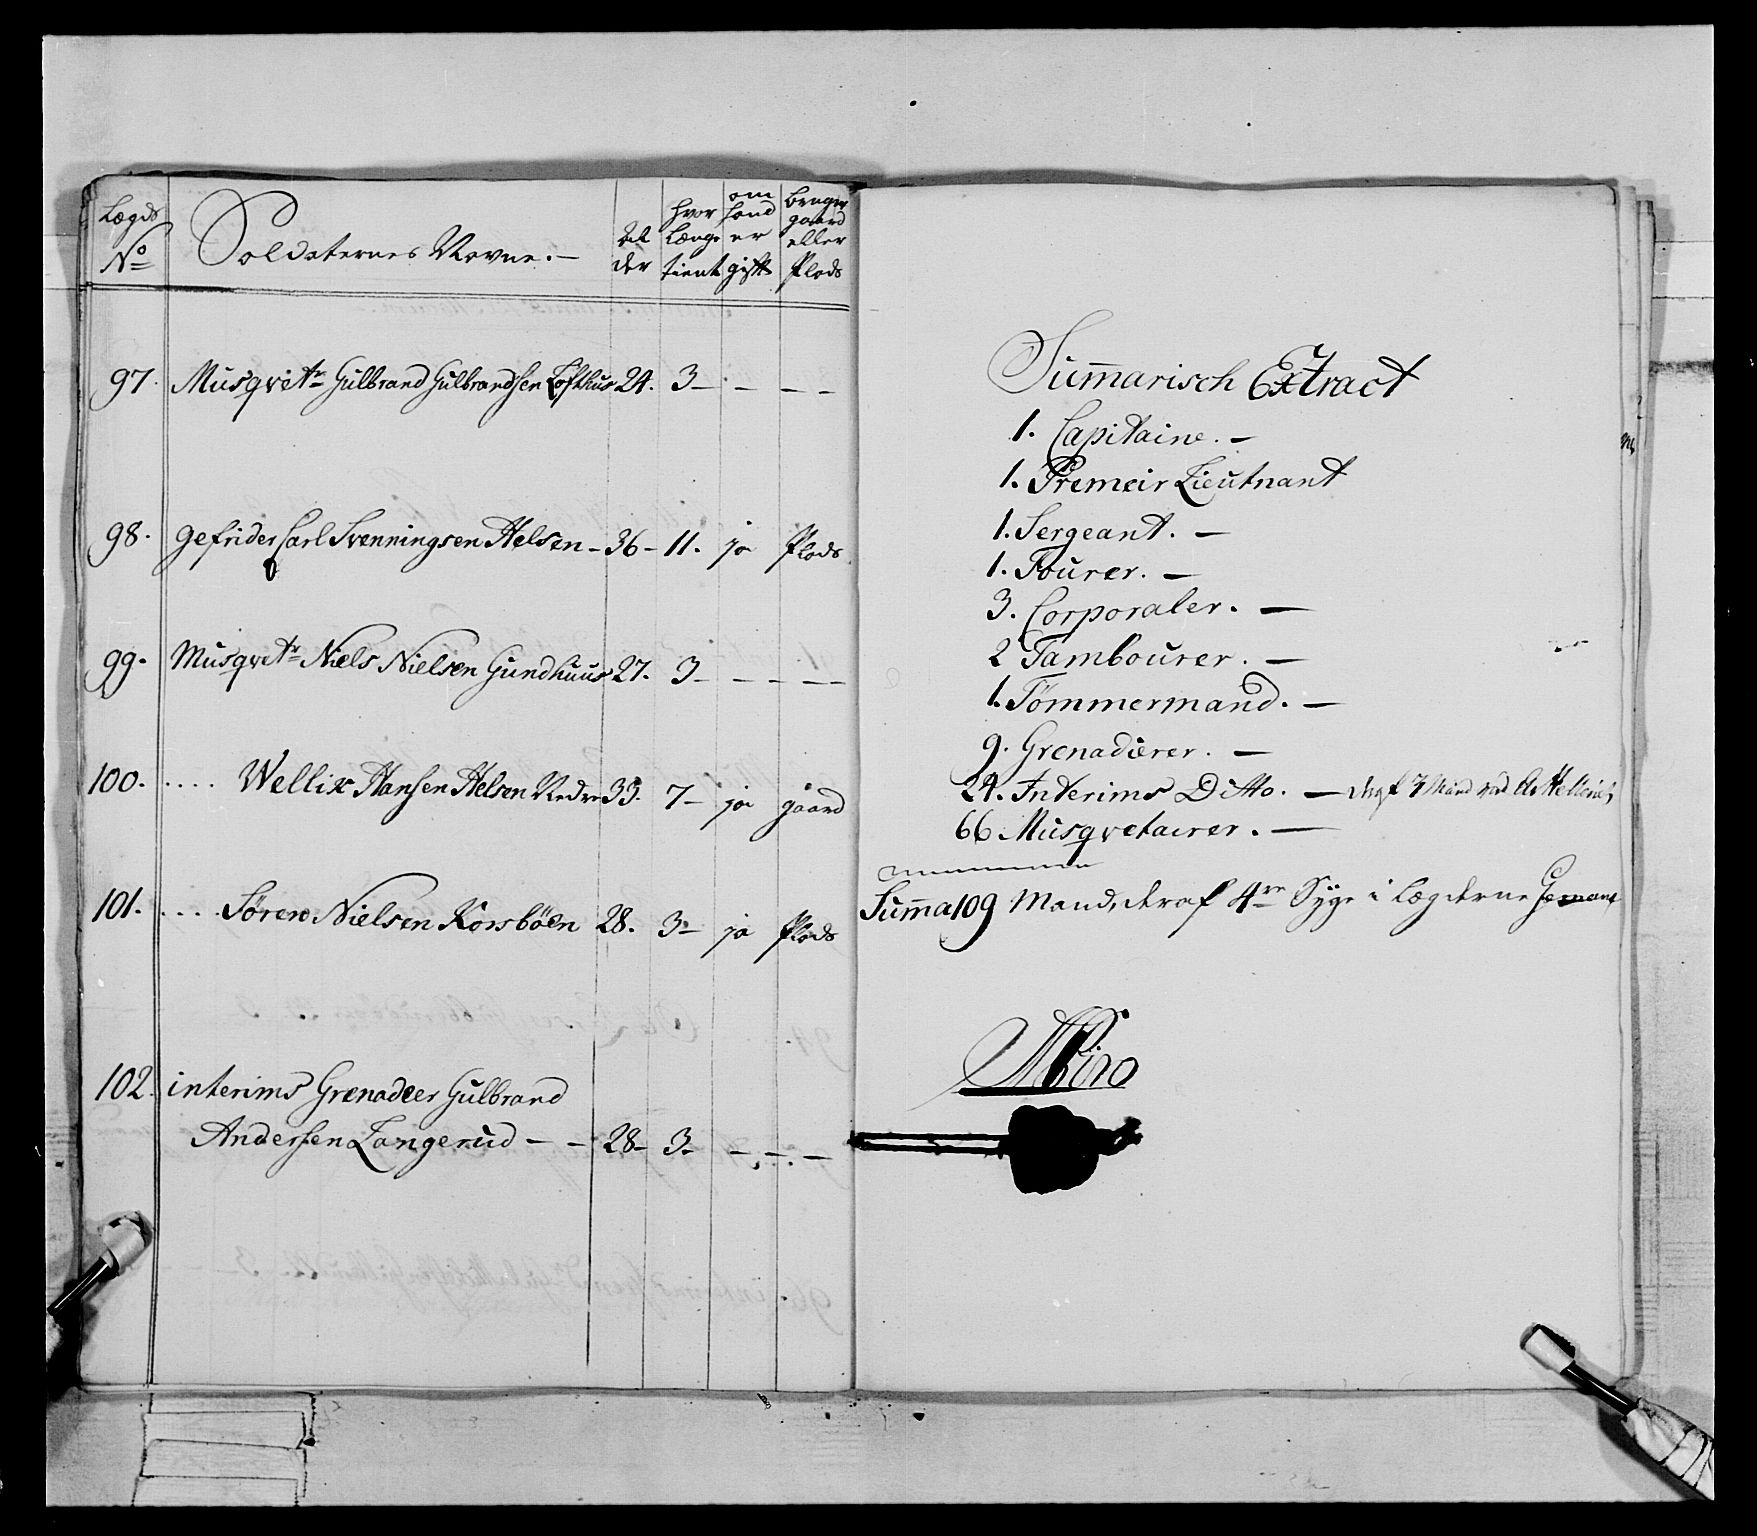 Lægds No
Soldaternes Navne. —
Alder
hvor Længe tient
om hand er gift
bruger gaard eller Plads
97. Musqvetr Gulbrand Gulbrandsen Lofthus 24. 3 — — — —
98. gefrider Carl Svenningsen Helsen — 36 — 11. ja Plads
99. Musqvetr Niels Nielsen Gundhuus 27. 3 — — — —
100. .... Wellix Hansen Helsen Nedre 33. 7 — ja gaard
101. .... Søren Nielsen Korsböen 28. 3 — ja Plads
102. interims Grenadeer Gulbrand
Andersen Langerud — — 28 — 3 — — — —
Summarisch Extract
1. Capitaine. —
1. Premeir Lieutnant
1. Sergeant. —
1. Fourer. —
3. Corporaler. —
2 Tambourer. —
1. Tömmermand. —
9. Grenadierer. —
24. Interims Ditto. — 7 Mand
66 Musqvetairer. —
Summa 109 Mand, deraf 4re Syge i Lægderne